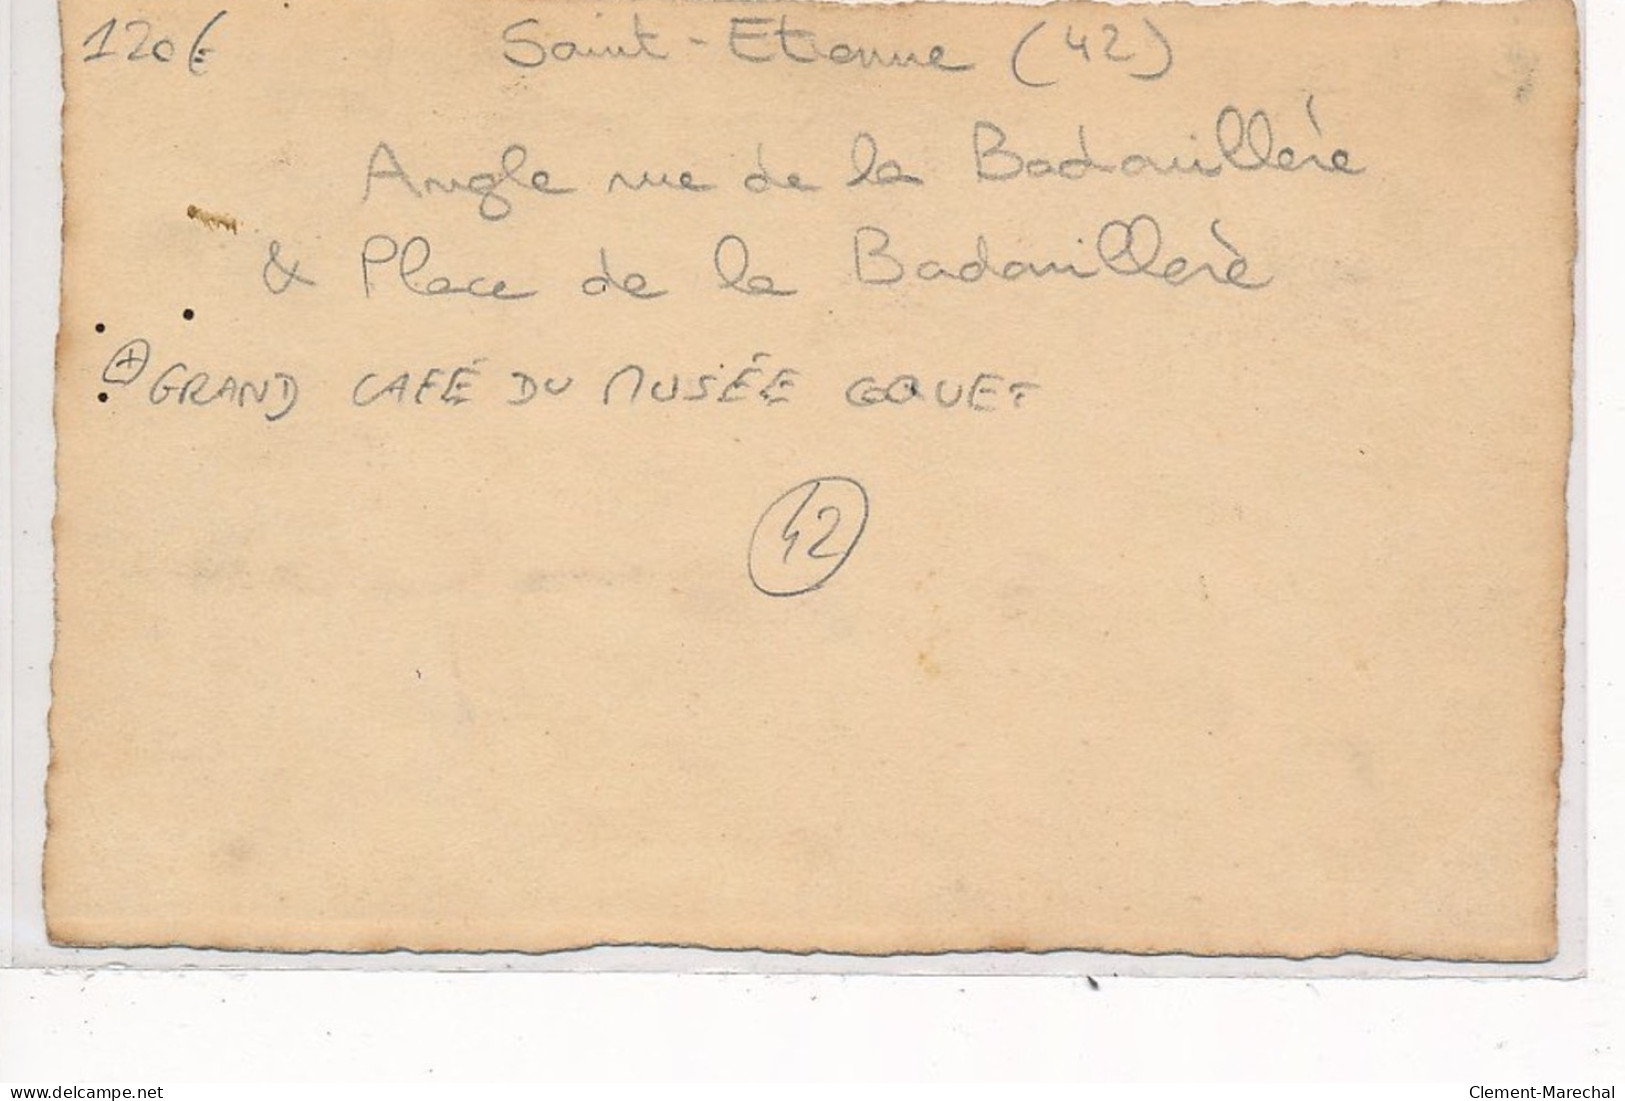 120€ Saint-Etienne (42)
Angle rue de la Badouillère
& Place de la Badouillère
+ GRAND CAFÉ DU MUSÉE GOUET
42
www.delcampe.net
Clement-Marechal